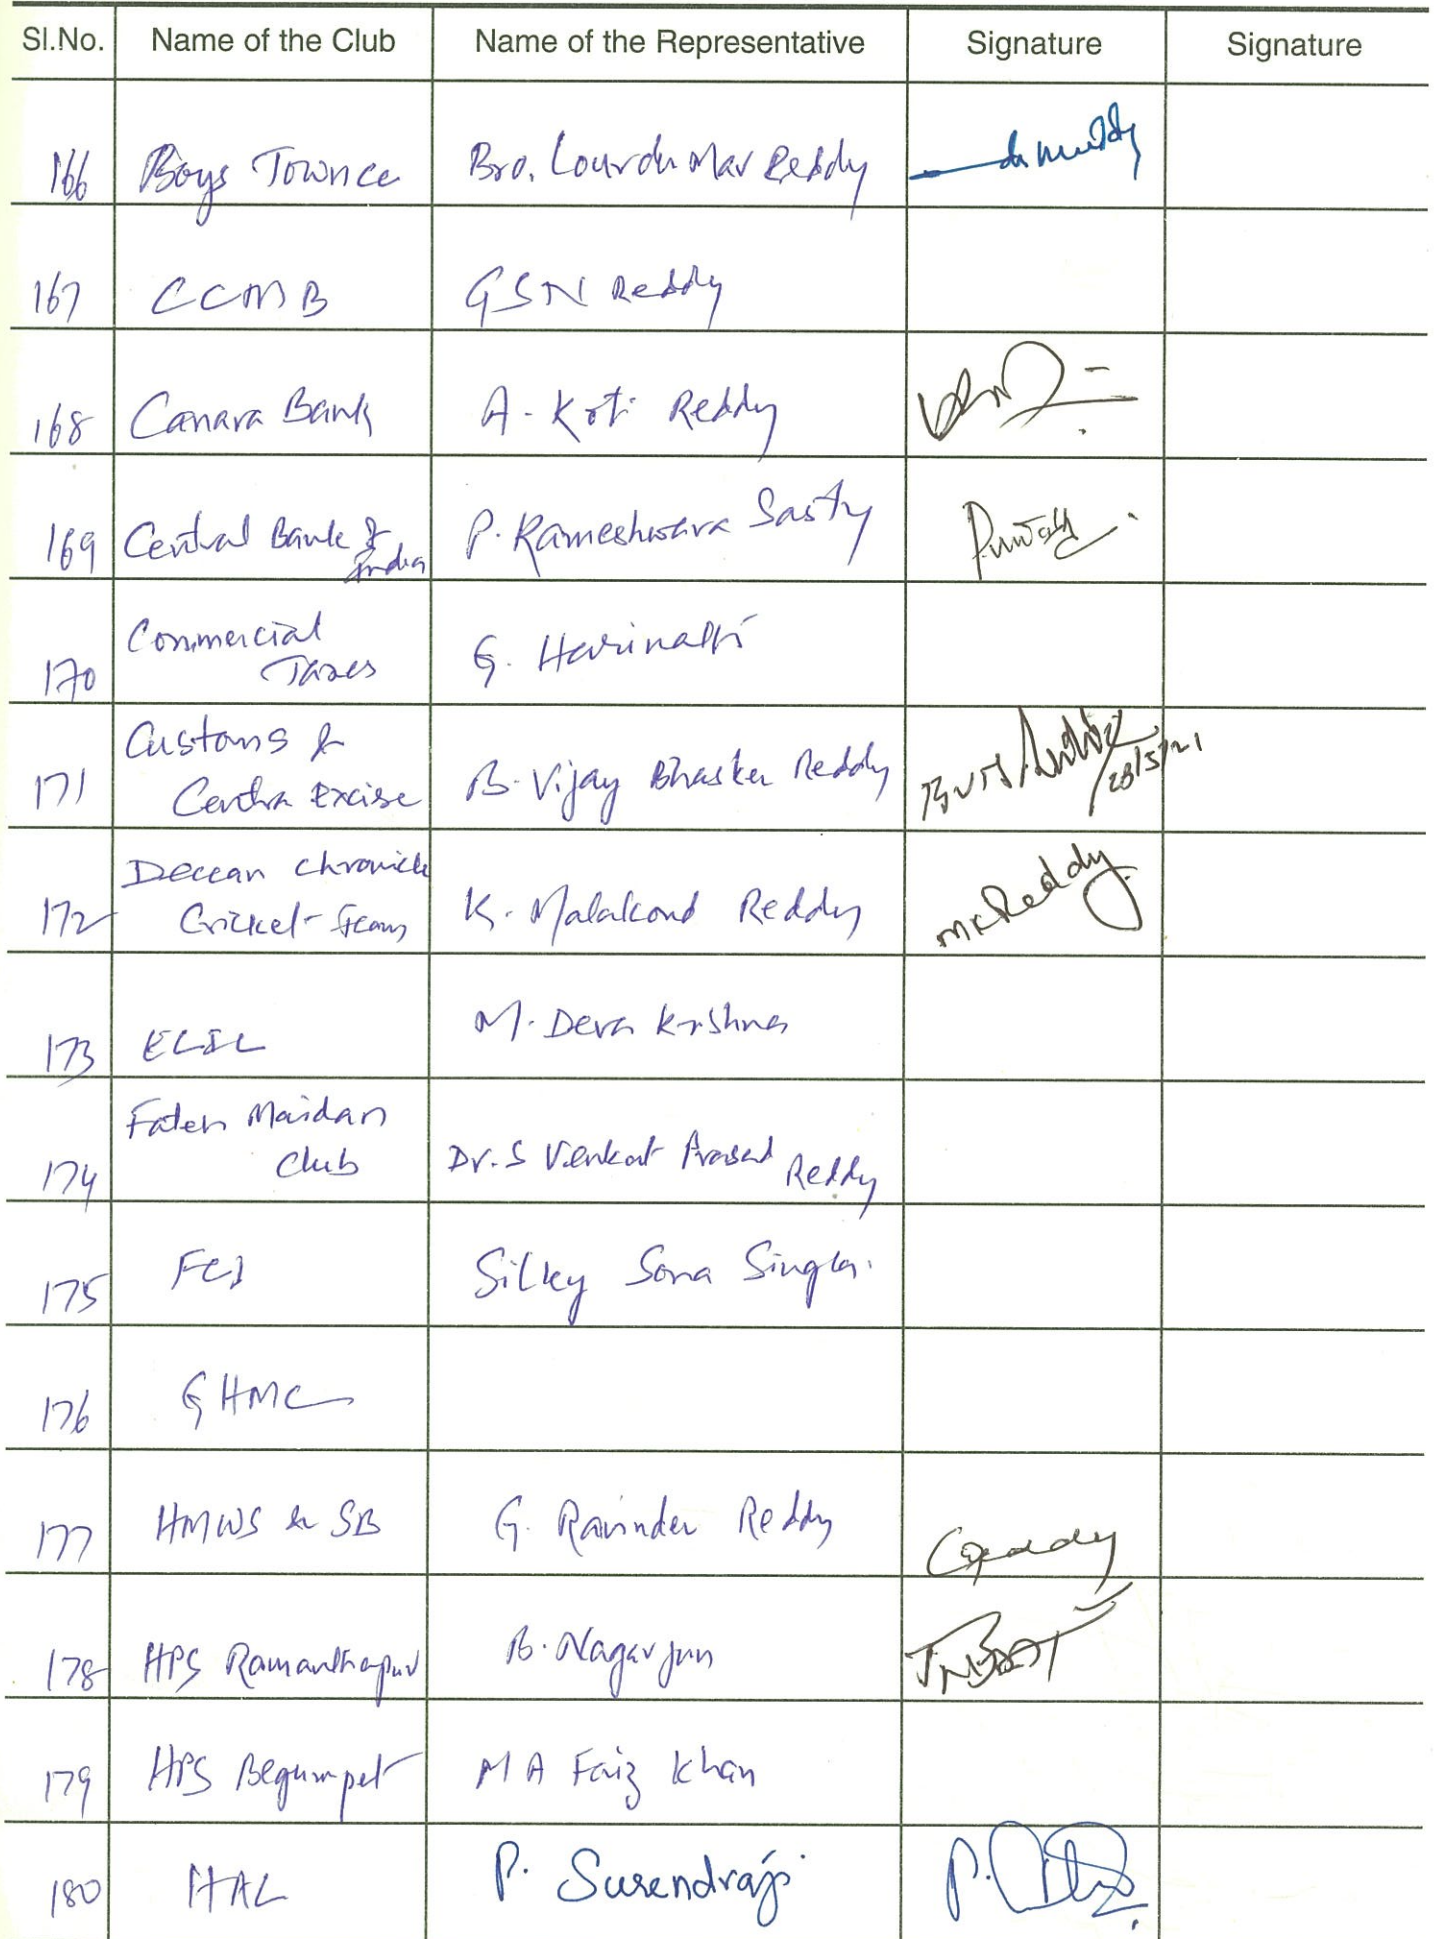 Sl.No. Name of the Club Name of the Representative Signature Signature
166 Boys Townce Bro. Lourdu Mar Reddy
167 CCMB GSN Reddy
168 Canara Bank A. Koti Reddy
169 Central Bank of P. Rameshwara Sastry
India
Commercial
170 Taxes G. Harinath
Customs &
171 Centra Excise B. Vijay Bhasker Reddy 28/3/21
Deccan Chronicle
172 Cricket Team K. Malakond Reddy MK Reddy
173 ECIL M. Deva Krishna
Fateh Maidan
174 Club Dr. S Venkat Prasad Reddy
175 FCI Silky Sona Singla.
176 GHMC
177 HMWS & SB G. Ravinder Reddy GReddy
178 HPS Ramanthapur B. Nagarjun
179 HPS Begumpet M A Faiz Khan
180 HAL P. Surendraji P.